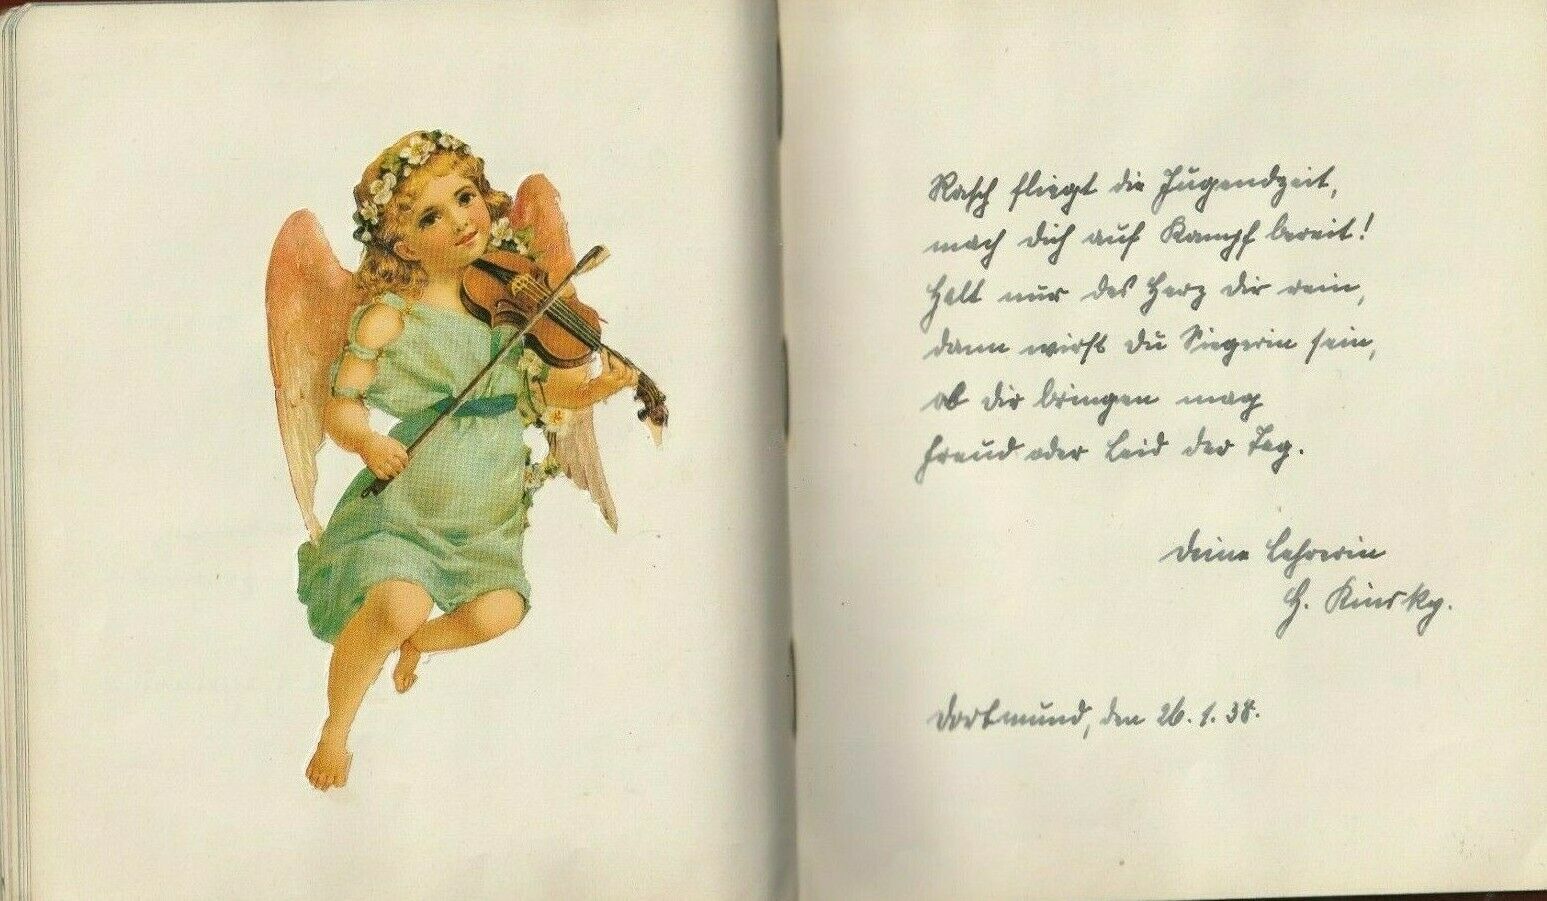 Rasch fliegt die Jugendzeit,
mach dich auf Kampf bereit!
Halt nur das Herz dir rein,
dann wirst du Siegerin sein,
ob dir bringen mag
Freud oder Leid der Tag.
Deine Lehrerin
H. Kinsky.
Dortmund, den 26.1.38.